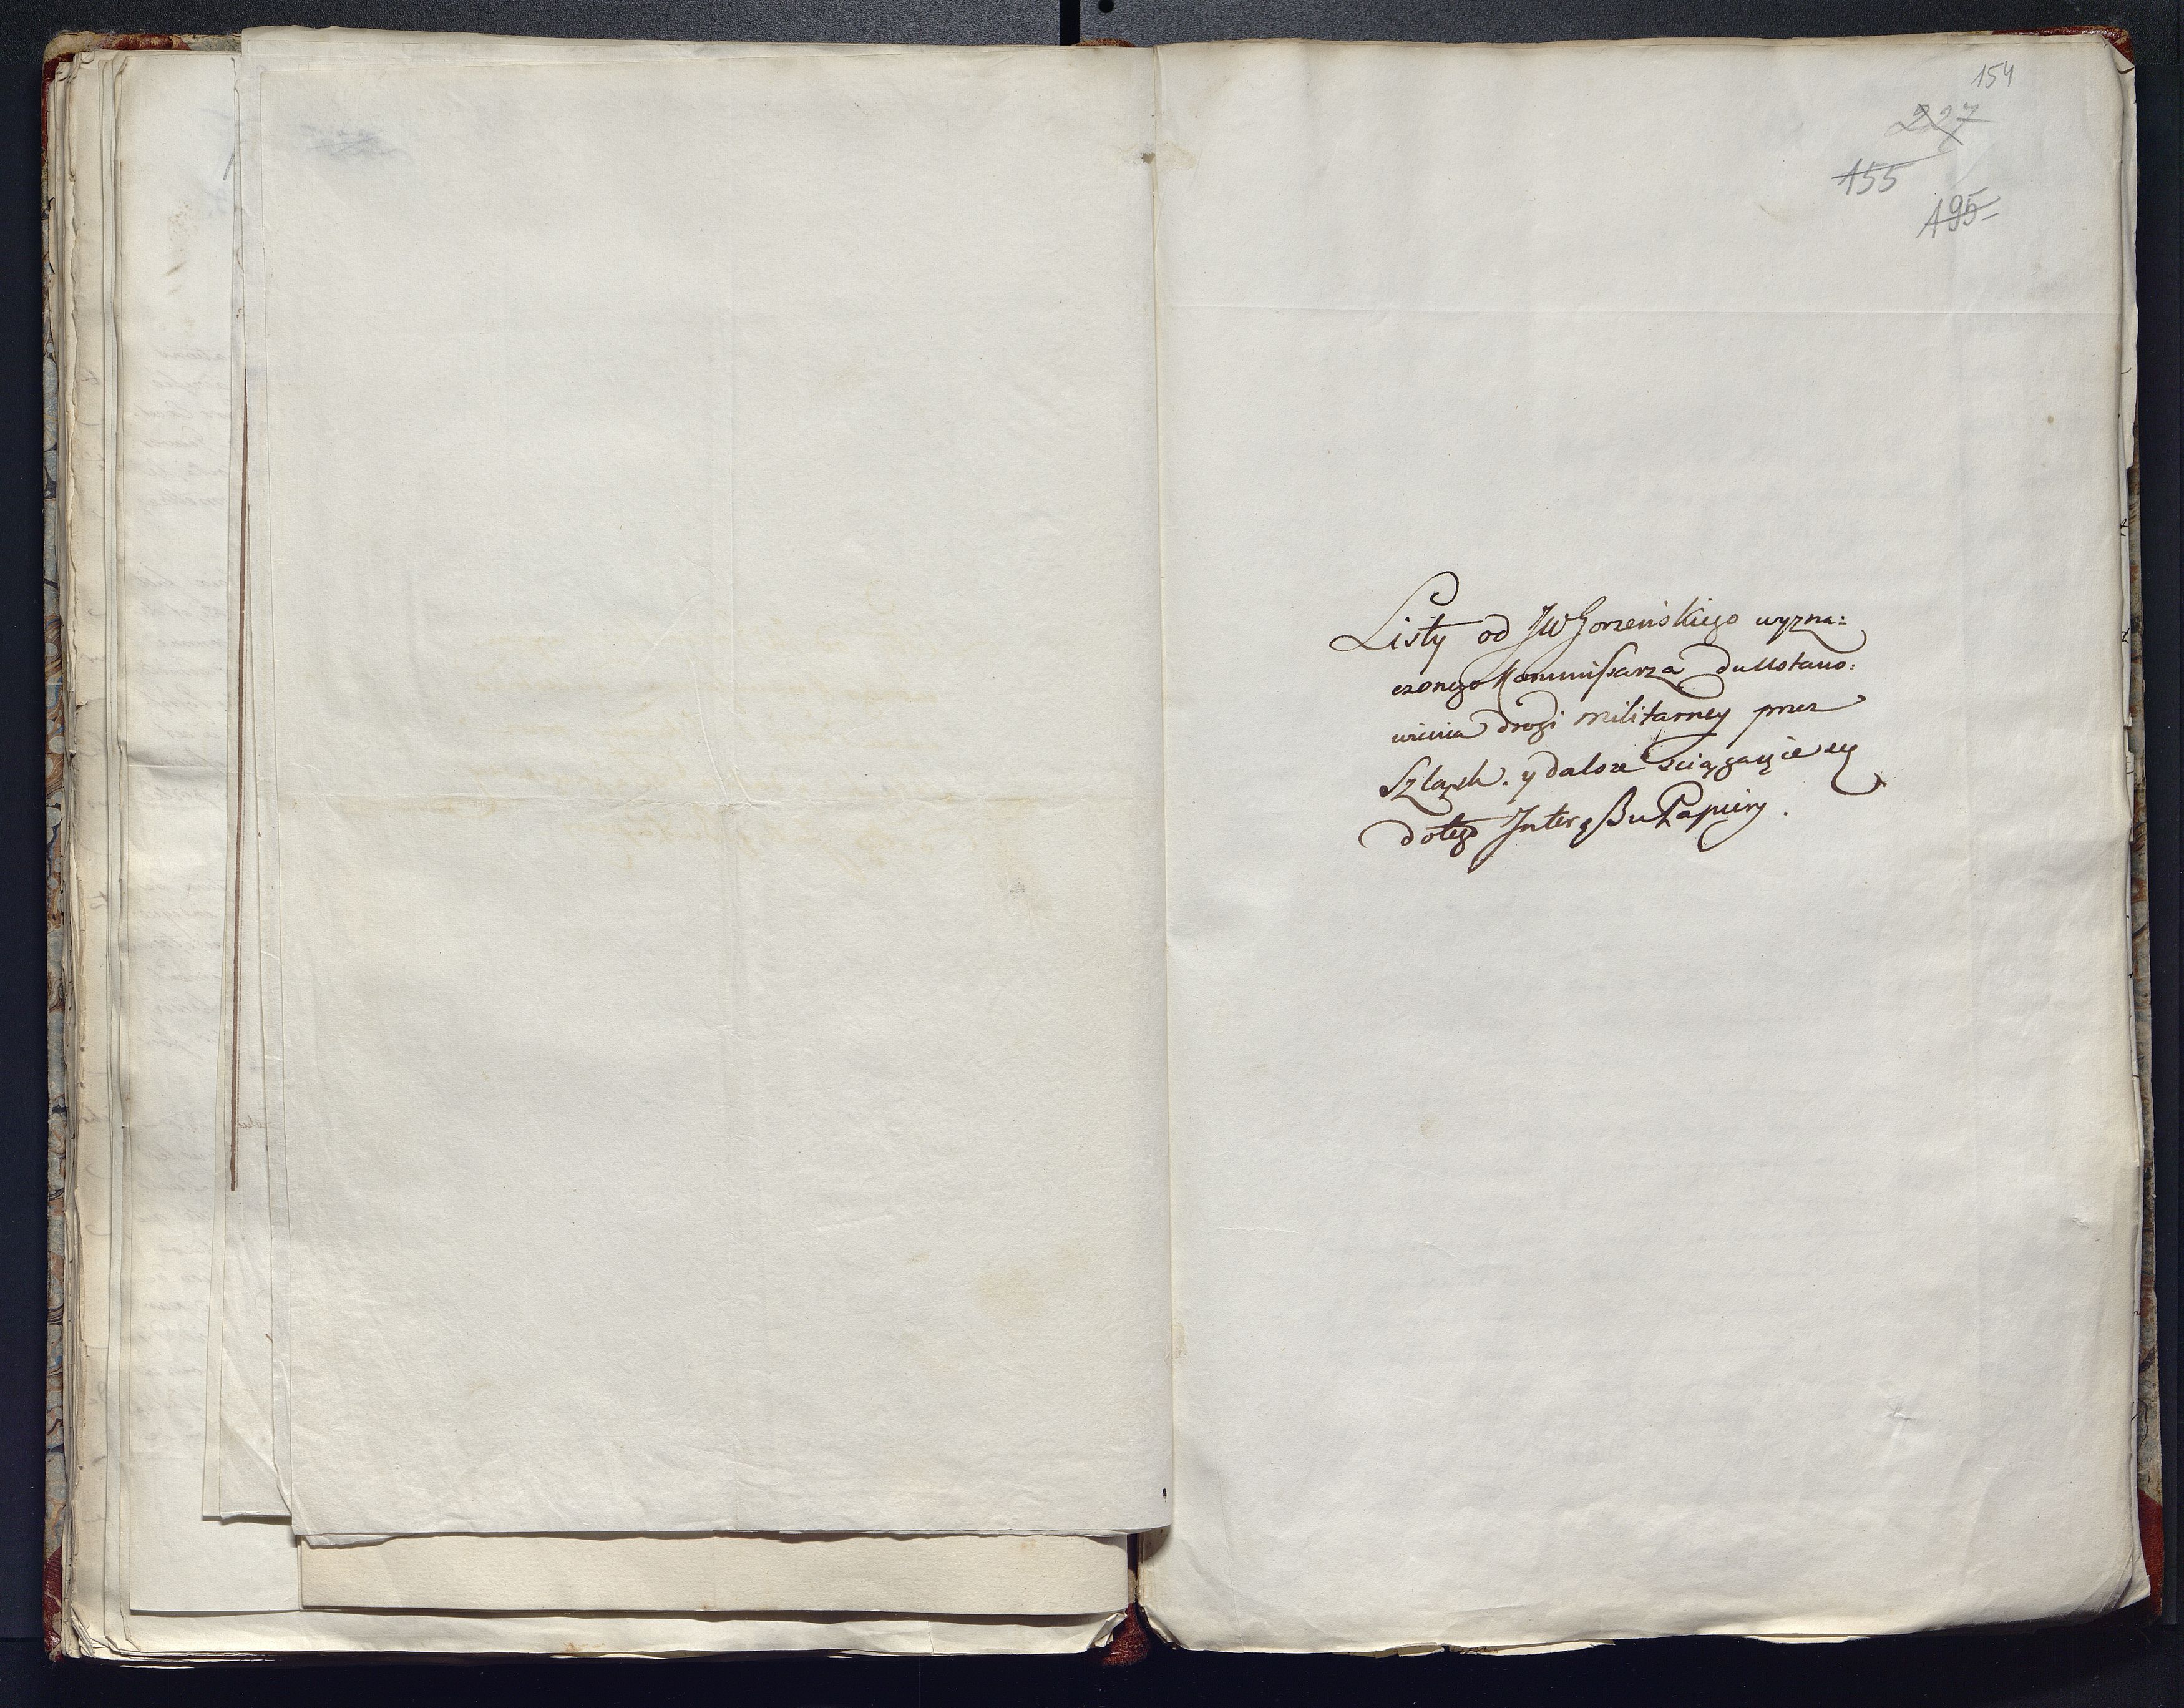 154
227
155
195
Listy od JW Gorzeńskiego wyzna:
czonego Kommissarza du Ustano:
wienia drogi militarney przez
Szląsk. y dalsze sciągaiące się
do tego Interessu Papiery.